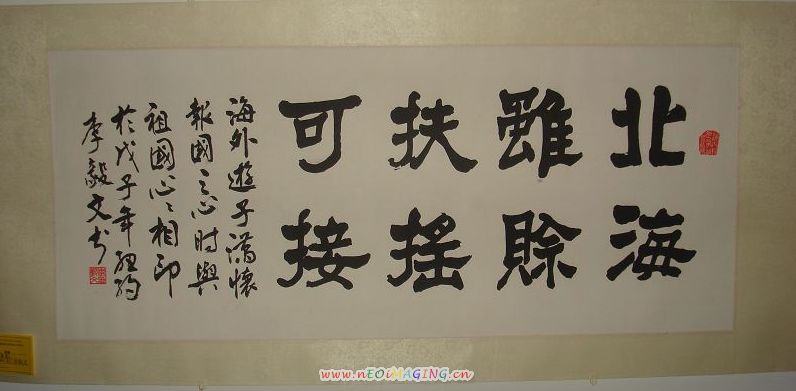 北海
雖賒
扶搖
可接
海外遊子滿懷
報國之心時與
祖國心〻相印
於戊子年紐約
李毅文书
www.nEOiMAGING.cn